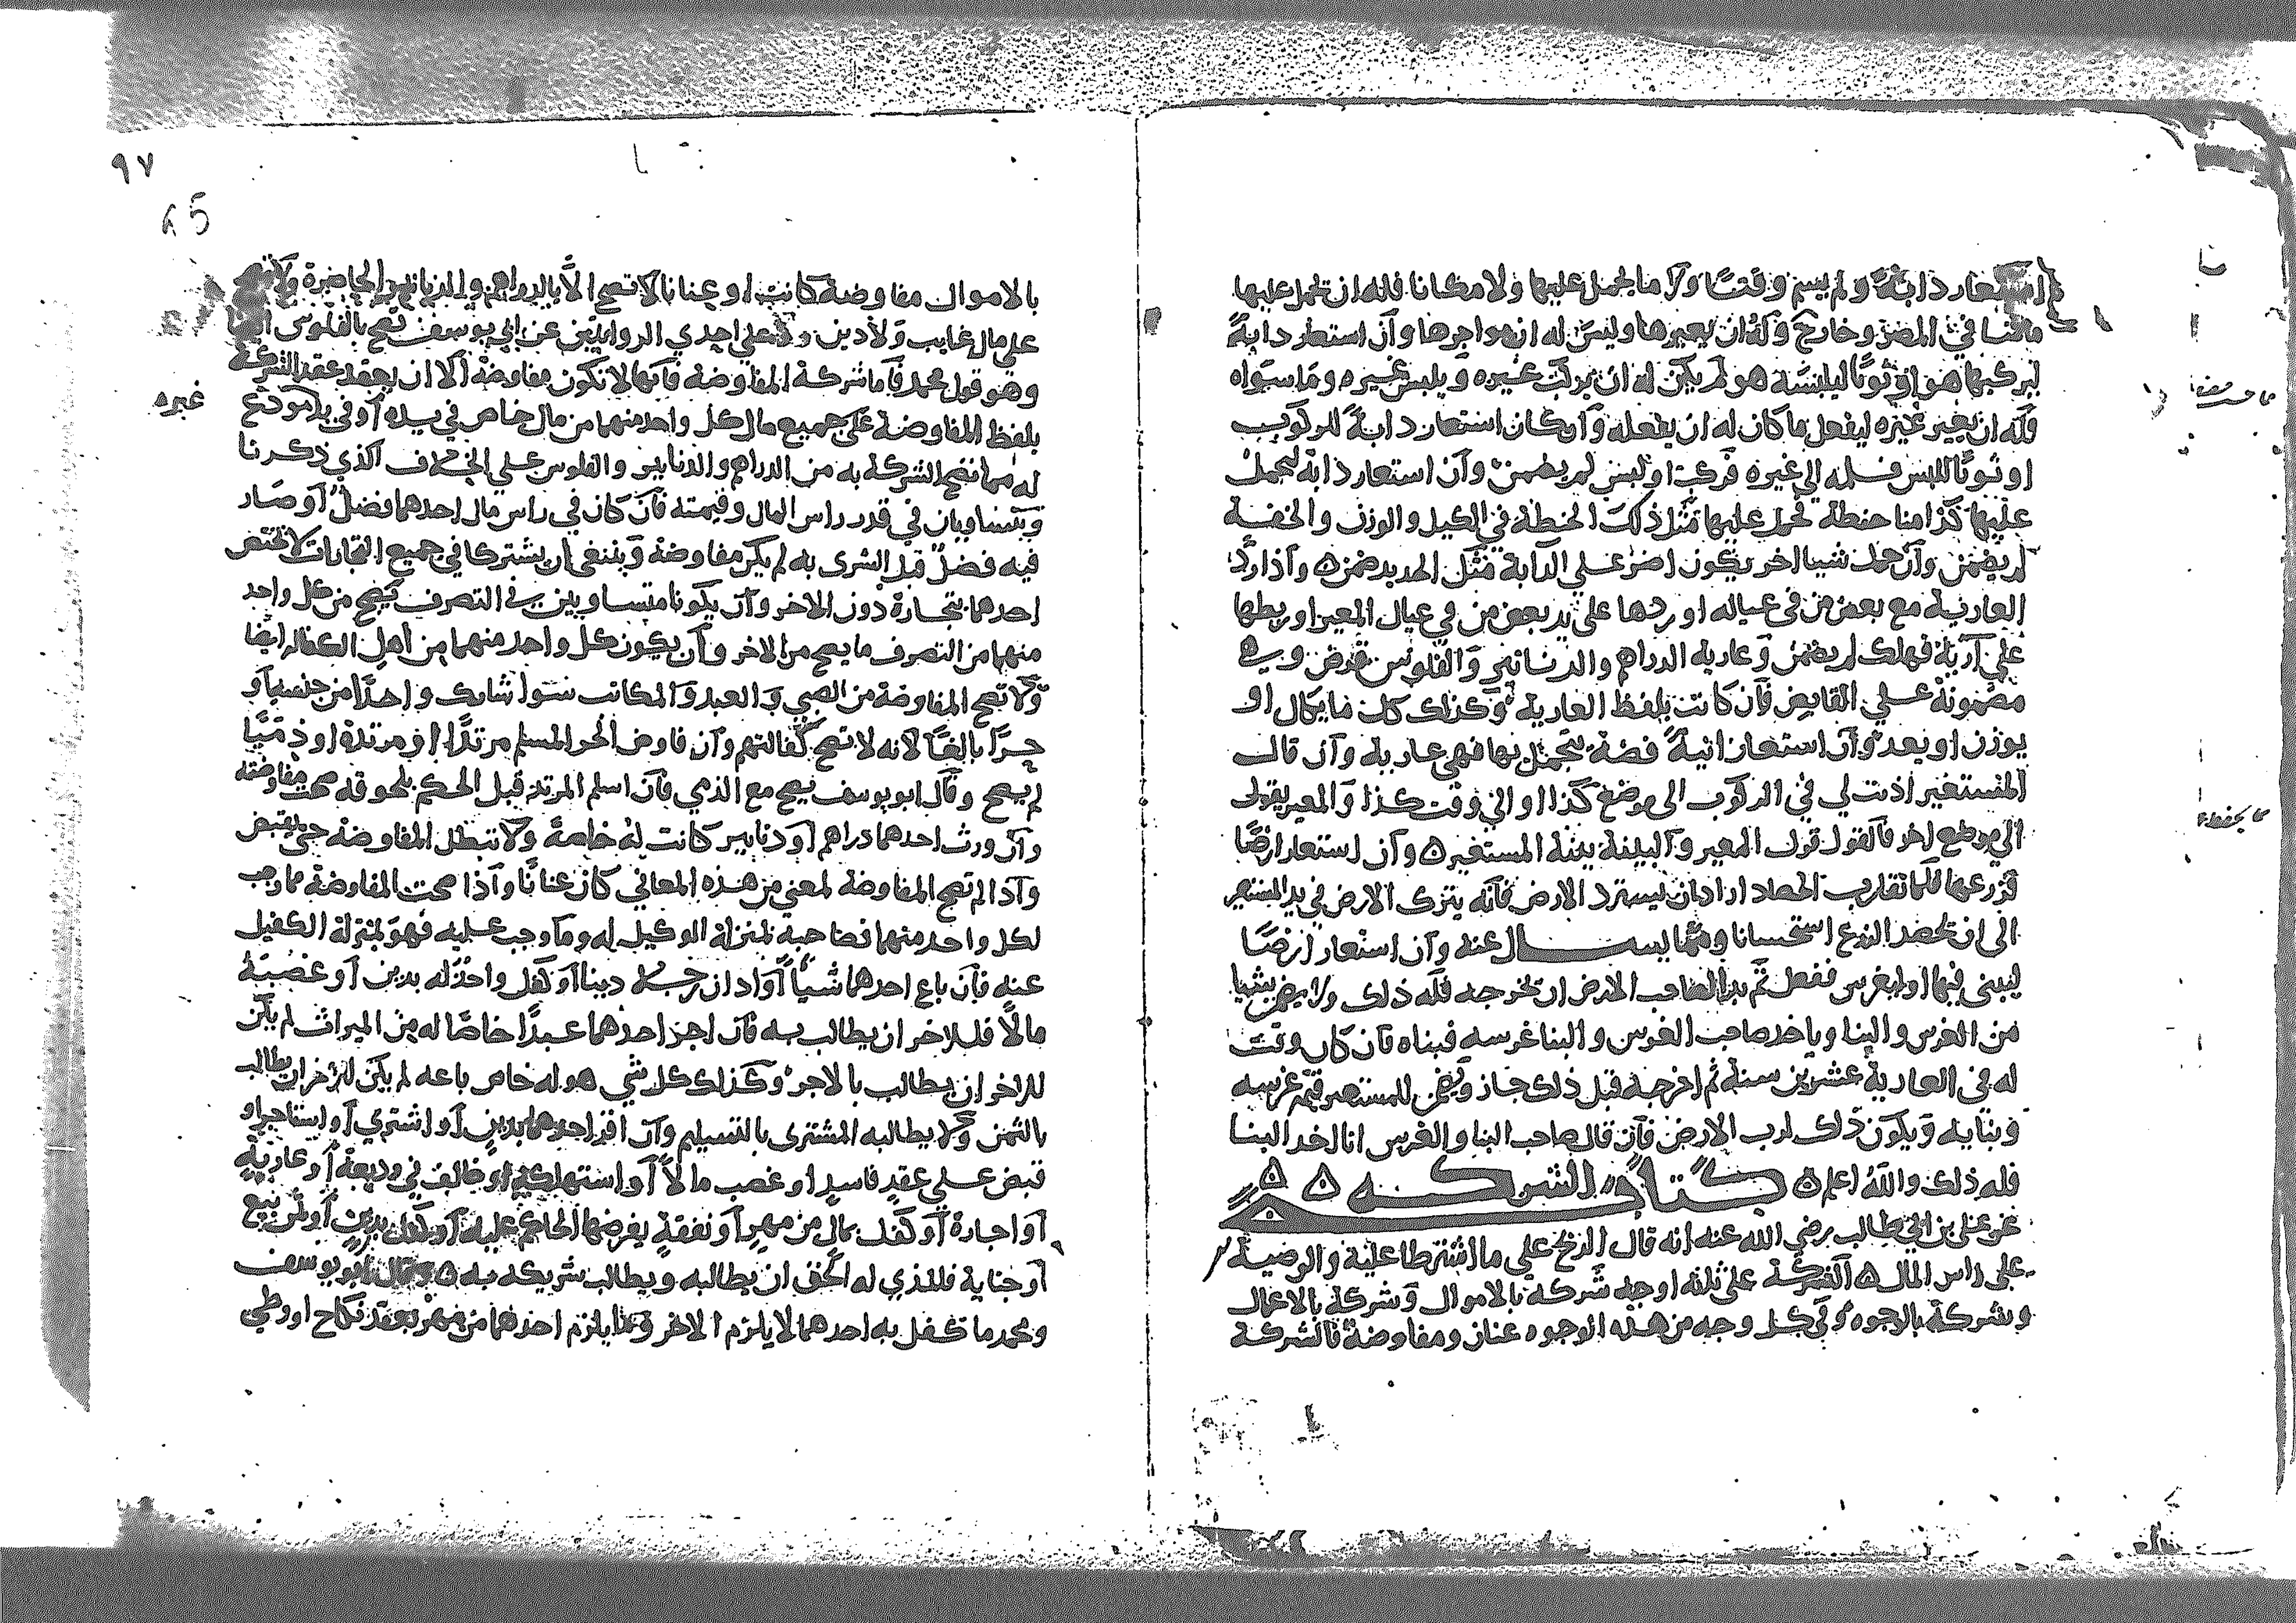 استعار دابة ولم يسم وقتا ولا ما يحمل عليها ولا مكانا فله ان يحمل عليها
ما شا في المصر وخارجه وله ان يعيرها وليس له ان يواجرها وان استعار دابة
ليركبها هو او ثوبا ليلبسه هو لم يكن له ان يركب غيره ويلبس غيره وما سواه
فله ان يعير غيره ليفعل ما كان له ان يفعله وان كان استعار دابة للركوب
او ثوبا للبس فسلمه الى غيره فركب او لبس لم يضمن وان استعار دابة ليحمل
عليها كذا منا حنطة فحمل عليها مثل ذلك الحنطة في الكيل والوزن والخفة
لم يضمن وان حمل شيا اخر يكون اضر على الدابة مثل الحديد ضمن ه واذا رد
العارية مع بعض من في عياله او ردها على يد بعض من في عيال المعير او ربطها
على اريه فهلك لم يضمن وعارية الدراهم والدنانير والفلوس قرض وهي
مضمونة على القابض فان كانت بلفظ العارية وكذلك كل ما يكال او
يوزن او يعد وان استعار انية فضة يتجمل بها فهي عارية وان قال
المستعير اذنت لي في الركوب الى موضع كذا او الى وقت كذا والمعير يقول
الى موضع اخر فالقول قول المعير والبينة بينة المستعير ه وان استعار ارضا
فزرعها فلما تقارب الحصاد اراد ان يسترد الارض فانه يترك الارض في يد المستعير
الى ان يحصد الزرع استحسانا ومما يسـال عنه وان استعار ارضا
ليبني فيها او ليغرس ففعل ثم بدا لصاحب الارض ان يخرجه فله ذلك ولا يضمن شيا
من الغرس والبنا وياخذ صاحب الغرس والبنا غرسه وبناه فان كان وقت
له في العارية عشرين سنة ثم اخرجه قبل ذلك جاز ويضمن للمستعير قيمة غرسه
وبنايه ويكون ذلك لرب الارض فان قال صاحب البنا والغرس انا اخذ البنا
فله ذلك والله اعلم ه كتاب الشركه ه ه
عن علي بن ابي طالب رضي الله عنه انه قال الربح على ما اشترطا عليه والوضيعة
على راس المال ه الشركة على ثلثه اوجه شركة بالاموال وشركة بالاعمال
وشركة بالوجوه وفي كل وجه من هذه الوجوه عنان ومفاوضة فالشركة
٩٧
بالاموال مفاوضة كانت او عنانا لا تصح الا بالدراهم والدنانير الحاضرة ولا تصح
على مال غايب ولا دين وعلى احدي الروايتين عن ابي يوسف تصح بالفلوس ايضا
وهو قول محمد فاما شركة المفاوضة فانها لا تكون مفاوضة الا ان يعقد عقد الشركة
بلفظ المفاوضة على جميع مال كل واحد منهما من مال خاص في يده او في يد مودع
غيره
له مما تصح الشركة به من الدراهم والدنانير والفلوس على الخلاف الذي ذكرنا
ويتساويان في قدر راس المال وقيمته فان كان في راس مال احدهما فضل او صار
فيه فضل قبل الشرى به لم يكن مفاوضة وينبغي ان يشتركا في جميع التجارات لا يختص
احدهما بتجارة دون الاخر وان يكونا متساويين في التصرف يصح من كل واحد
منهما من التصرف ما يصح من الاخر وان يكون كل واحد منهما من اهل الكفاله ايضا
ولا تصح المفاوضة من الصبي والعبد والمكاتب سوا شارك واحدا من جنسه او
حرا بالغا لانه لا تصح كفالتهم وان فاوض الحر المسلم مرتدا او مرتدة او ذميا
لم يصح وقال ابو يوسف يصح مع الذمي فان اسلم المرتد قبل الحكم بلحوقه صحت مفاوضته
وان ورث احدهما دراهم او دنانير كانت له خاصة ولا تبطل المفاوضة حتى يقبض
واذا لم تصح المفاوضة لمعنى من هذه المعاني كان عنانا واذا صحت المفاوضة فما وجب
لكل واحد منهما فصاحبه بمنزلة الوكيل له وما وجب عليه فهو بمنزلة الكفيل
عنه فان باع احدهما شيا او ادان رجلا دينا او كفل واحد له بدين او غصبه
مالا فللاخر ان يطالب به فان اجر احدهما عبدا خاصا له من الميراث لم يكن
للاخر ان يطالب بالاجر وكذلك كل شي هو له خاص باعه لم يكن للاخر ان يطالب
بالثمن ولا يطالبه المشترى بالتسليم وان اقر احدهما بدين او اشترى او استاجر او
قبض على عقد فاسد او غصب مالا او استهلكه او خالف في وديعة او عارية
او اجارة او كفل بمال من مهر او نفقة يفرضها الحاكم عليه او كفل بدين او ثمن بيع
او جناية فللذي له الحق ان يطالبه ويطالب شريكه به ه وقال ابو يوسف
ومحمد ما تكفل به احدهما لا يلزم الاخر وما يلزم احدهما من مهر بعقد نكاح او وطي